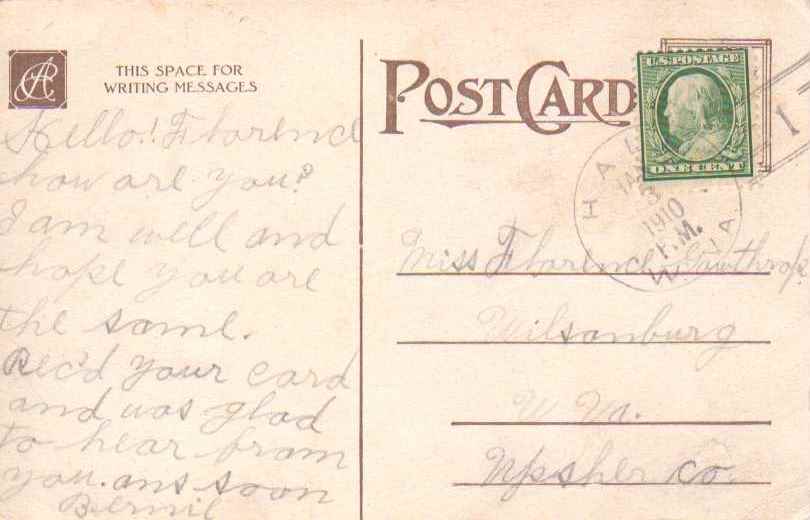 THIS SPACE FOR
WRITING MESSAGES
POST CARD
U.S. POSTAGE
ONE CENT
1
3
1910
P.M.
W. VA.
Hello! Florence
how are you?
I am well and
hope you are
the same.
Rec'd your card
and was glad
to hear from
you. ans soon
Miss Florence
Wilsonburg
W Va.
Upsher Co.